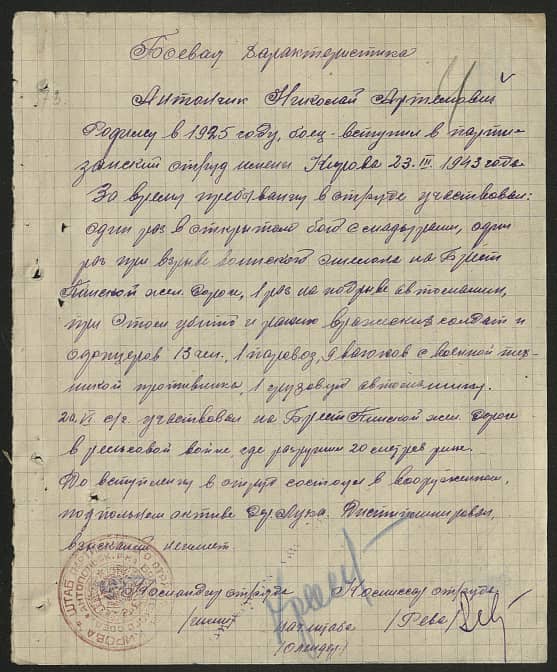 Боевая характеристика
Антончик Николай Артемович
Родился в 1925 году, боец - вступил в парти-
занский отряд имени Кирова 23. III. 1943 года.
За время пребывания в отряде участвовал:
один раз в открытом бою с мадьярами, один
раз при взрыве воинского эшелона на Брест
Пинской жел. дороге, 1 раз на подрыве автомашин,
при этом убито и ранено вражеских солдат и
офицеров 13 чел., 1 паровоз, 9 вагонов с военной тех-
никой противника, 1 грузовую автомашину.
20. VI с/г. участвовал на Брест Пинской жел. дороге
в рельсовой войне, где разрушил 20 метров рельс.
До вступления в отряд состоял в вооруженном
подпольном активе дер. Лука. Дисциплинирован,
взысканий не имеет.
Командир отряда Комиссар отряда
нач. штаба /Рева/
ШТАБ КИРОВА